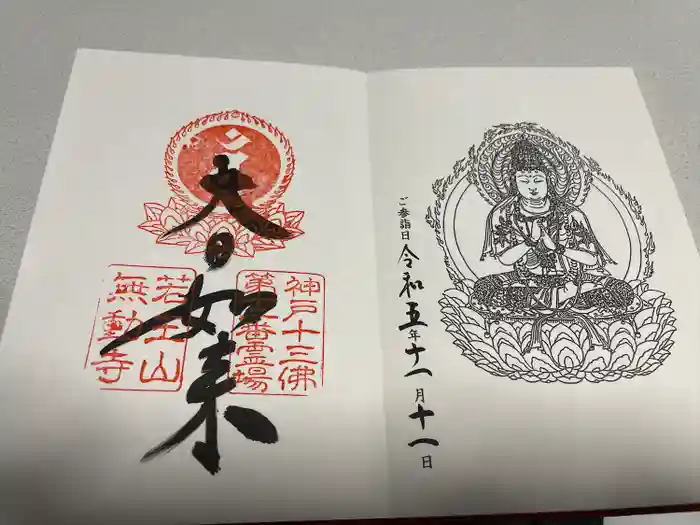 ご参詣日 令和五年十一月十一日
大日如来
神戸十三佛
第十二番霊場
若王山
無動寺